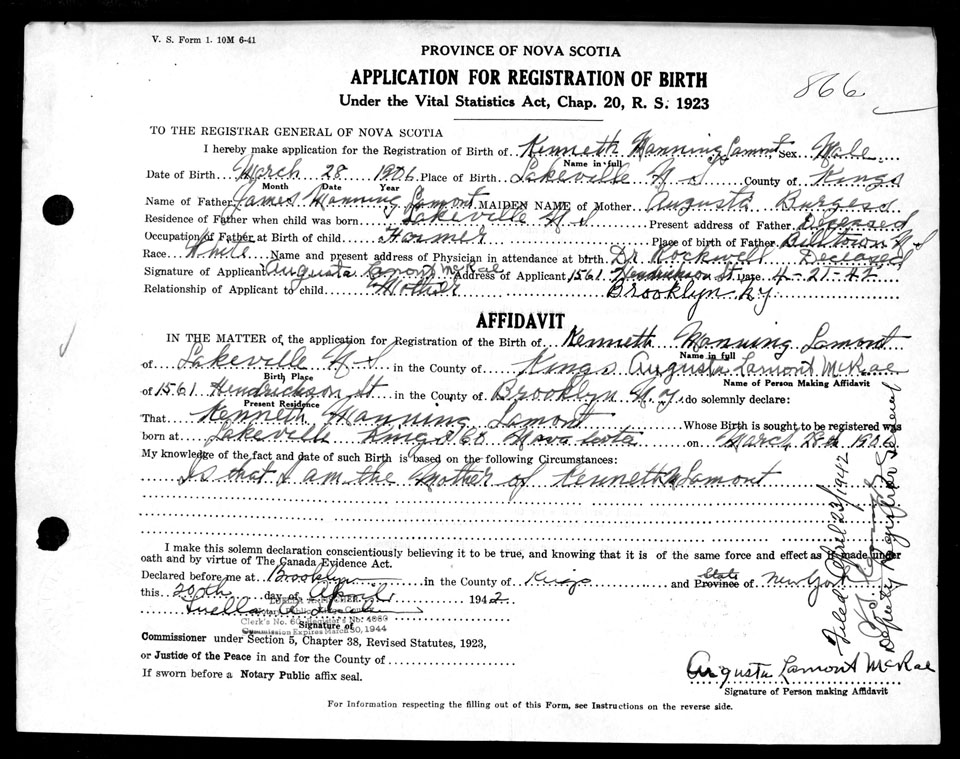 V. S. Form 1. 10M 6-41
PROVINCE OF NOVA SCOTIA
APPLICATION FOR REGISTRATION OF BIRTH
866
Under the Vital Statistics Act, Chap. 20, R. S. 1923
TO THE REGISTRAR GENERAL OF NOVA SCOTIA
I hereby make application for the Registration of Birth of Kenneth Manning Lamont Sex Male
Name in full
Date of Birth March 28 1906 Place of Birth Lakeville N S County of Kings
Month Date Year
Name of Father James Manning Lamont MAIDEN NAME of Mother Augusta Burgess
Residence of Father when child was born Lakeville N S Present address of Father Deceased
Occupation of Father at Birth of child Farmer Place of birth of Father Billtown N S
Race White Name and present address of Physician in attendance at birth Dr Rockwell Deceased
Signature of Applicant Augusta Lamont McRae Address of Applicant 1561 Hendrickson St Date 4-21-42
Relationship of Applicant to child Mother Brooklyn N y
AFFIDAVIT
IN THE MATTER of the application for Registration of the Birth of Kenneth Manning Lamont
Name in full
of Lakeville N S in the County of Kings Augusta Lamont McRae
Birth Place Name of Person Making Affidavit
of 1561 Hendrickson St in the County of Brooklyn N.y. do solemnly declare:
Present Residence
That Kenneth Manning Lamont Whose Birth is sought to be registered was
born at Lakeville Kings Co Nova Scotia on March 28th 190
My knowledge of the fact and date of such Birth is based on the following Circumstances:
Is that I am the Mother of Kenneth M Lamont
I make this solemn declaration conscientiously believing it to be true, and knowing that it is of the same force and effect as if made under
oath and by virtue of The Canada Evidence Act.
Declared before me at Brooklyn in the County of Kings and Province State of New York
this 20th day of April 1942
Luella
Clerk's No. 60 Register's No. 4069
Commission Expires March 30, 1944
Signature of
Commissioner under Section 5, Chapter 38, Revised Statutes, 1923,
or Justice of the Peace in and for the County of
If sworn before a Notary Public affix seal.
Augusta Lamont McRae
Signature of Person making Affidavit
For Information respecting the filling out of this Form, see Instructions on the reverse side.
Filed April 23/1942
Deputy Registrar General